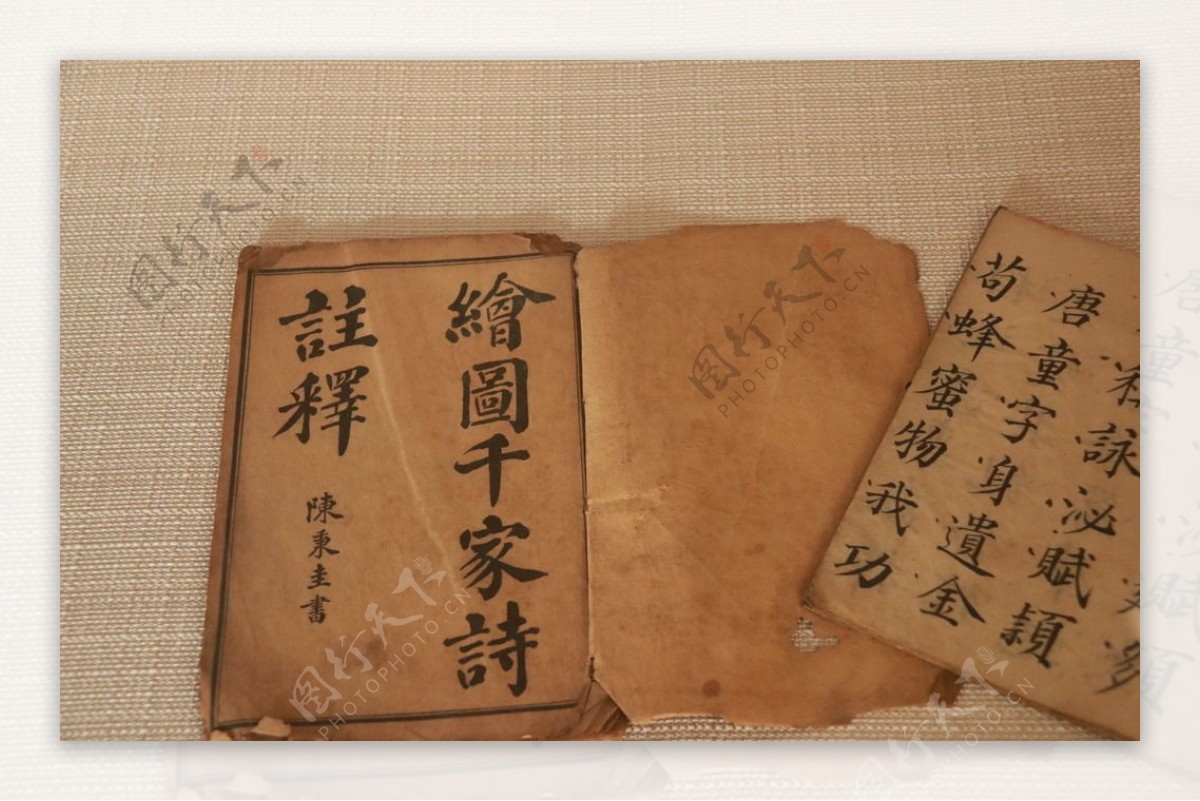 繪圖千家詩
註釋
陳秉圭書
詠泌賦
唐童字身遺金
苟蜂蜜物我功
图行天下
PHOTOPHOTO.CN
图行天下
PHOTOPHOTO.CN
图行天下
PHOTOPHOTO.CN